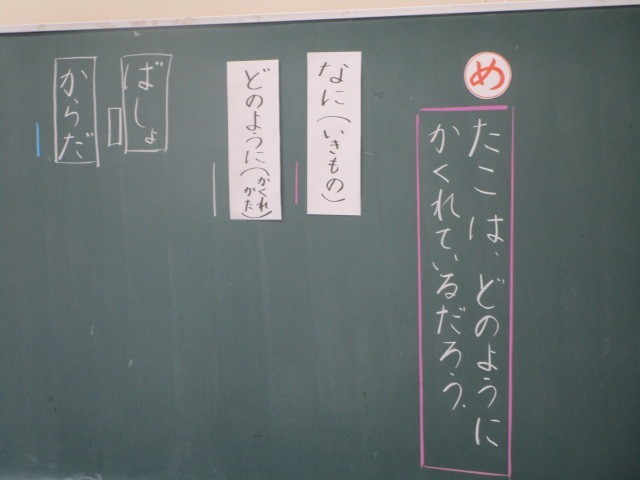 め
たこは、どのように
かくれているだろう。
なに(いきもの)
どのように(かくれ
かた)
ばしょ
からだ